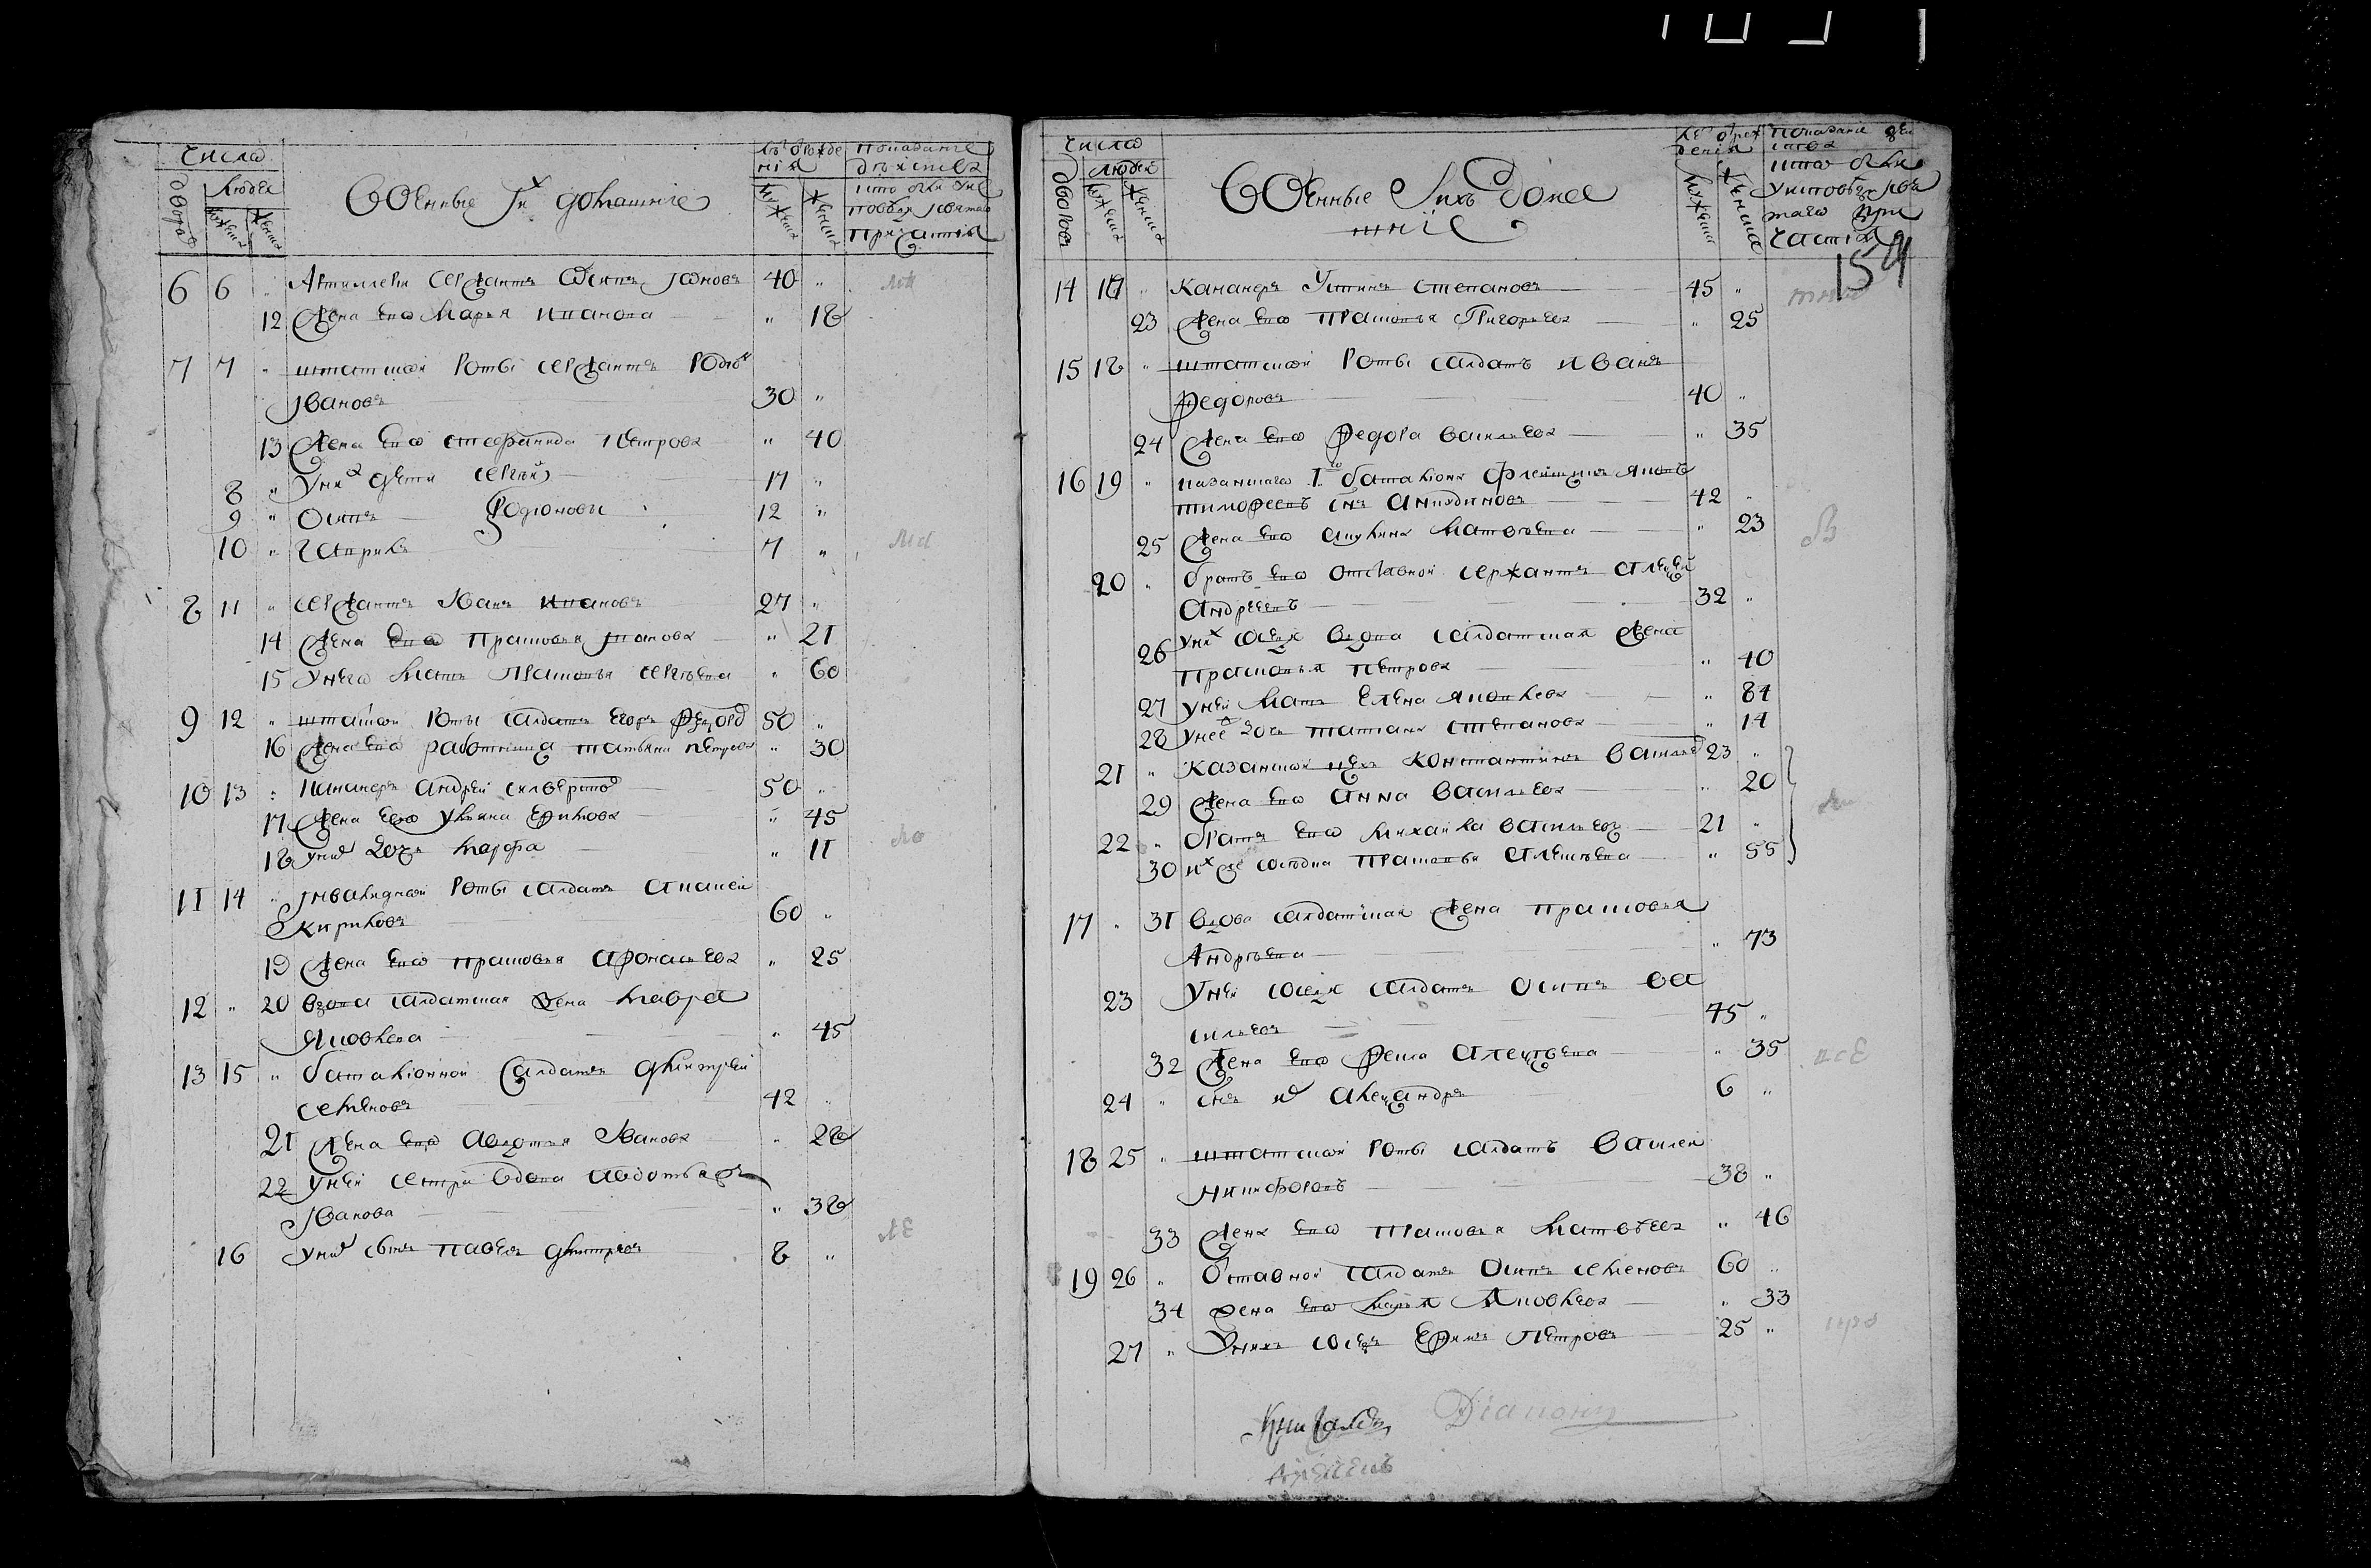 Число
дворовъ
людей
мужеска
женска
Военные і их домашніе
лѣтъ отъ рожденія
мужеска
женска
показаніе
дѣйства
кто былъ у исповѣди и святаго
причастія
6 6 „ Артиллеріи сержантъ Осипъ Іоновъ 40 „
12 Жена его Марья Иванова „ 18
7 7 „ штатской роты сержантъ Родіонъ
Івановъ 30 „
13 Жена его Стефанида Петрова „ 40
8 „ У них дети Сергѣй 17 „
9 „ Осипъ Родіоновы 12 „
10 „ Гаврила 7 „
8 11 „ сержантъ Иванъ Ивановъ 27 „
14 Жена его Прасковья „ 21
15 У него мать Прасковья Сергѣева „ 60
9 12 „ штатской роты салдатъ Егоръ Федоров 50 „
16 Жена его работница Татьяна Петрова „ 30
10 13 Канонеръ Андрей Силверстов 50 „
17 Жена его Ульяна Ефимова „ 45
18 у них дочь Марфа „ 11
11 14 „ Інвалидной роты салдатъ
Кириловъ 60 „
19 Жена его Прасковья Афонасьева „ 25
12 „ 20 вдова салдатская жена Мавра
Яковлева „ 45
13 15 „ баталіонной салдатъ Дмитрей
Семеновъ 42 „
21 Жена его Авдотья Иванова „ 28
22 У ней сестра вдова Авдотья
Іванова „ 38
16 У них сынъ Павелъ Дмитріевъ 8 „
Число
дворовъ
людей
мужеска
женска
Военные і ихъ домашніе
лѣтъ от рожденія
мужеска
женска
показаніе дѣйства
кто былъ
у исповѣди и святаго причастія
159
14 17 „ Канонеръ Устинъ Степановъ 45 „
23 Жена его Прасковья Григорьева „ 25
15 18 „ штатской роты салдатъ Иванъ
Федоровъ 40 „
24 Жена его Федора Васильева „ 35
16 19 „ Казанскаго 1го баталіона флейщикъ Яковъ
Тимофеевъ снъ 42 „
25 Жена его Акулина Матвѣева „ 23
20 „ братъ его отставной сержантъ Алексѣй
Андреевъ 32 „
26 у них соседка вдова салдатская жена
Прасковья Петрова „ 40
27 у ней мать Елена Яковлева „ 84
28 у нее дочь Татьяна Степанова „ 14
21 „ Казанской цех Константинъ Васильев 23 „
29 Жена его Анна Васильева „ 20
22 „ братъ его Михайла Васильевъ 21 „
30 их же соседка Прасковья Алексѣева „ 55
17 „ 31 вдова салдатская жена Прасковья
Андрѣева „ 73
23 У ней соседъ салдатъ Осипъ Ва
сильевъ 75 „
32 Жена его Фекла Алексѣева „ 35
24 „ снъ их Александръ 6 „
18 25 „ штатской роты салдатъ Василей
Никифоровъ 38 „
33 Жена его Прасковья Матвѣева „ 46
19 26 „ Отставной салдатъ Осипъ Семеновъ 60 „
34 жена его Марья Яковлева „ 33
27 „ У нихъ соседъ Ефимъ Петровъ 25 „
Діаконъ
Алексѣевъ